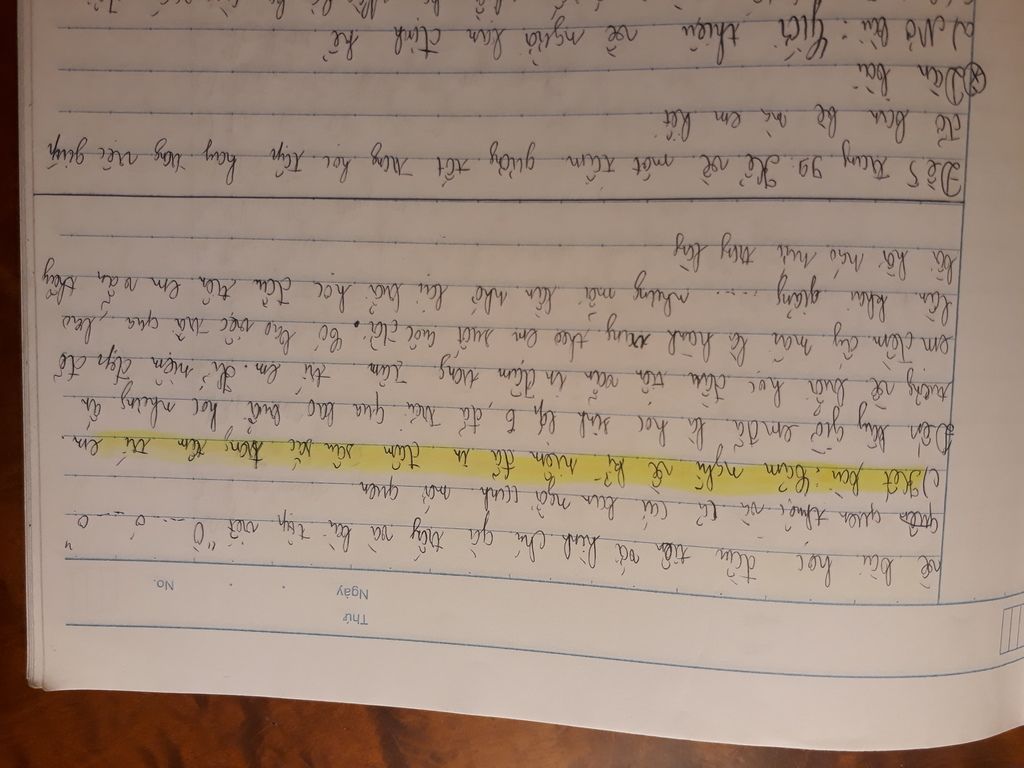 Thứ
Ngày No.
về bài học đầu tiên với hình chú gà trống và bài tập viết "O o ó
quen thuộc và cả cái bạn ngồi cạnh mới quen
c) Kết bài: Cảm nghĩ về kỷ niệm đã in đậm sâu sắc trong tâm trí em
Đến bây giờ em đã là học sinh lớp 6, đã trải qua bao buổi học nhưng ấn
tượng về buổi học đầu tiên vẫn in đậm trong tâm trí em. Kỉ niệm đẹp đẽ
em đềm ấy mãi là hành trang theo em suốt cuộc đời. Có thể việc trải qua
lần khai giảng .... nhưng mỗi lần nhớ lại buổi học đầu tiên em vẫn thấy
bồi hồi náo nức trong lòng
Đề 5 trang 99: Kể về một tấm gương tốt trong học tập hay trong việc giúp
đỡ bạn bè mà em biết
Dàn bài
a) Mở bài: Giới thiệu về người bạn định kể